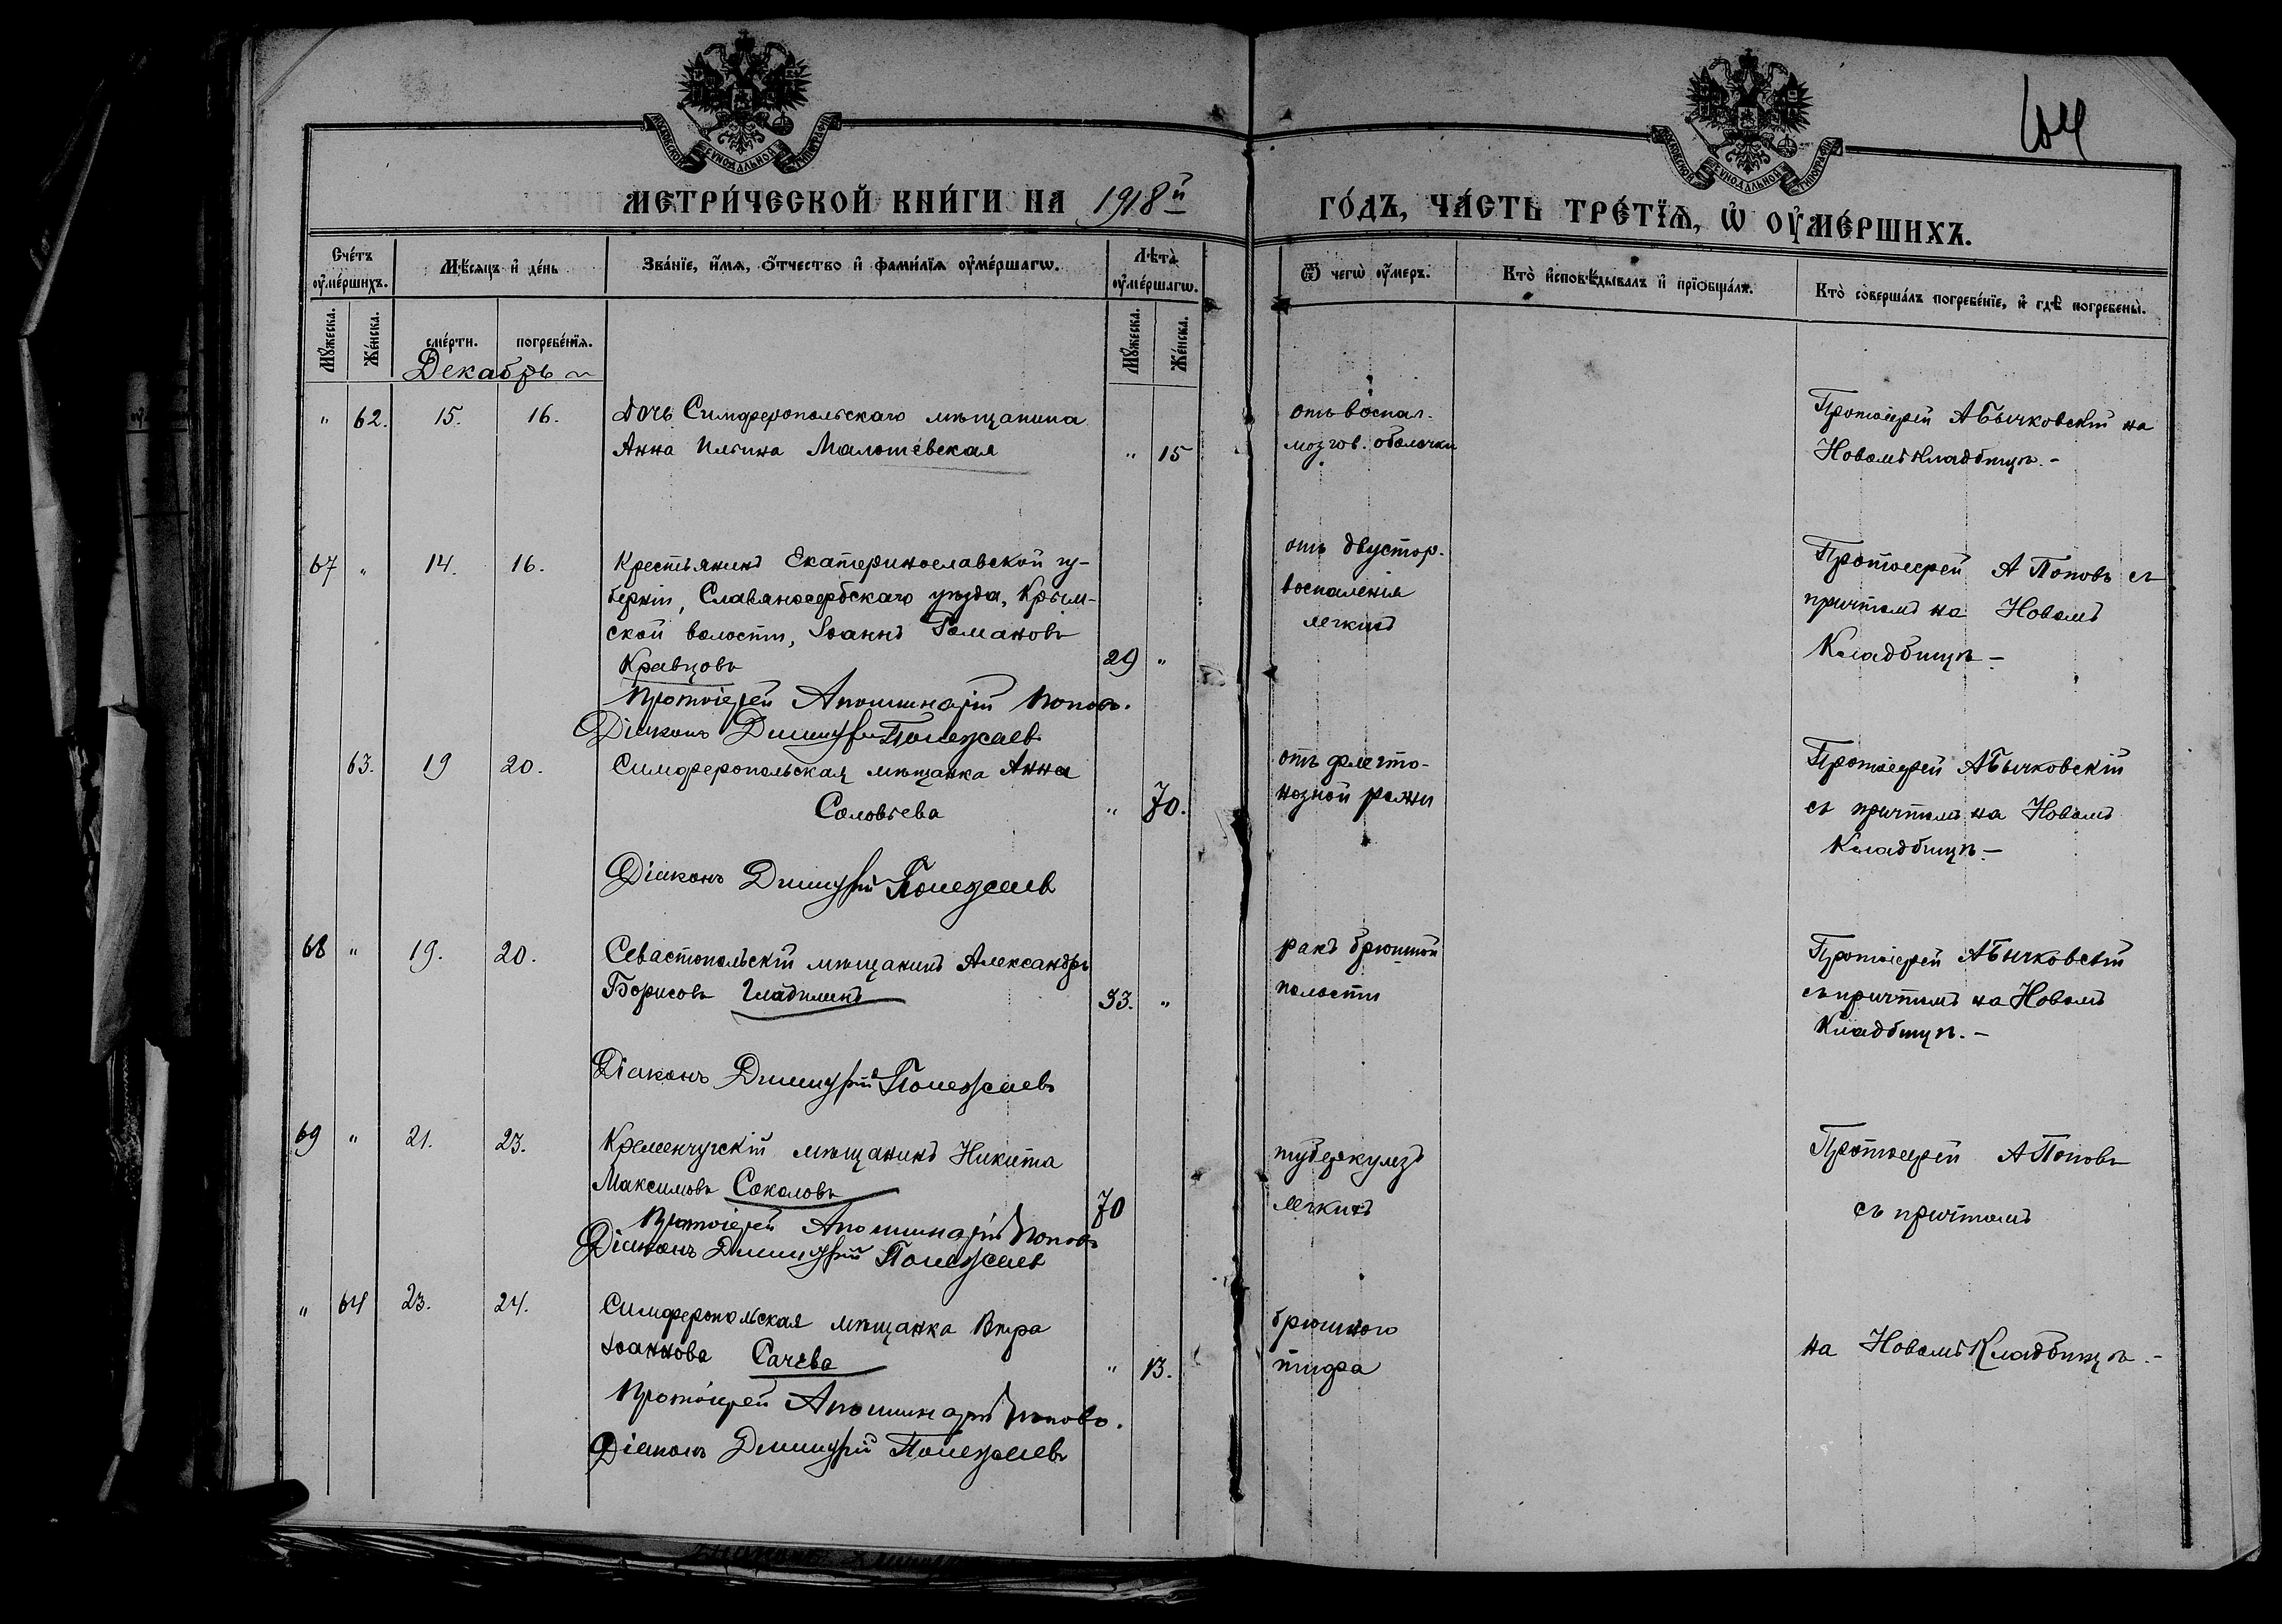 МОСКОВСКОЙ СѴНОДАЛЬНОЙ ТИПОГРАФІИ
МОСКОВСКОЙ СѴНОДАЛЬНОЙ ТИПОГРАФІИ
МЕТРИ́ЧЕСКОЙ КНИ́ГИ НА 1918й
ГО́ДЪ, ЧА́СТЬ ТРЕ́ТІѦ, Ѡ҆ ОУ҆МЕ́РШИХЪ.
Сче́тъ оу҆ме́ршихъ.
Мѣ́сяцъ и҆ де́нь
Зва́нїе, и҆́мѧ, ѻ҆́тчество и҆ фами́лїѧ оу҆ме́ршагѡ.
Лѣ́та оу҆ме́ршагѡ.
Ѿ чегѡ̀ оу҆́меръ.
Кто̀ и҆сповѣ́дывалъ и҆ прїѡбща́лъ.
Кто̀ соверша́лъ погребе́нїе, и҆ гдѣ̀ погребены̀.
Мꙋ́жеска. Же́нска. сме́рти. погребе́нїѧ. Мꙋ́жеска. Же́нска.
Декабрь
" 62. 15. 16. Дочь Симферопольскаго мѣщанина
Анна Ильина Малашевская " 15
отъ воспал.
мозгов. оболочки
Протоіерей А Бычковскій на
Новомъ кладбищѣ. –
67 " 14. 16. Крестьянинъ Екатеринославской гу-
берніи, Славяносербскаго уѣзда, Крым-
ской волости, Іоаннъ Романовъ
Кравцовъ 29 "
Протоіерей Аполлинарій Поповъ.
Діаконъ Димитрій Полежаевъ
отъ двустор.
воспаленія
легкихъ
Протоіерей А Поповъ съ
причтомъ на Новомъ
Кладбищѣ –
63. 19 20. Симферопольская мѣщанка Анна
Соловьева " 70.
Діаконъ Димитрій Полежаевъ
отъ флегмо-
нозной рожи
Протоіерей А Бычковскій
съ причтомъ на Новомъ
Кладбищѣ –
68 " 19. 20. Севастопольскій мѣщанинъ Александръ
Борисовъ Гладилинъ 33. "
Діаконъ Димитрій Полежаевъ
ракъ брюшной
полости
Протоіерей А Бычковскій
съ причтомъ на Новомъ
Кладбищѣ. –
69 " 21. 23. Кременчугскій мѣщанинъ Никита
Максимовъ Соколовъ 70
Протоіерей Аполлинарій Поповъ
Діаконъ Димитрій Полежаевъ
туберкулезъ
легкихъ
Протоіерей А Поповъ
съ причтомъ
" 64 23. 24. Симферопольская мѣщанка Вѣра
Іоаннова Сачева " 13.
Протоіерей Аполлинарій Поповъ.
Діаконъ Димитрій Полежаевъ
брюшного
тифа
на Новомъ Кладбищѣ. –